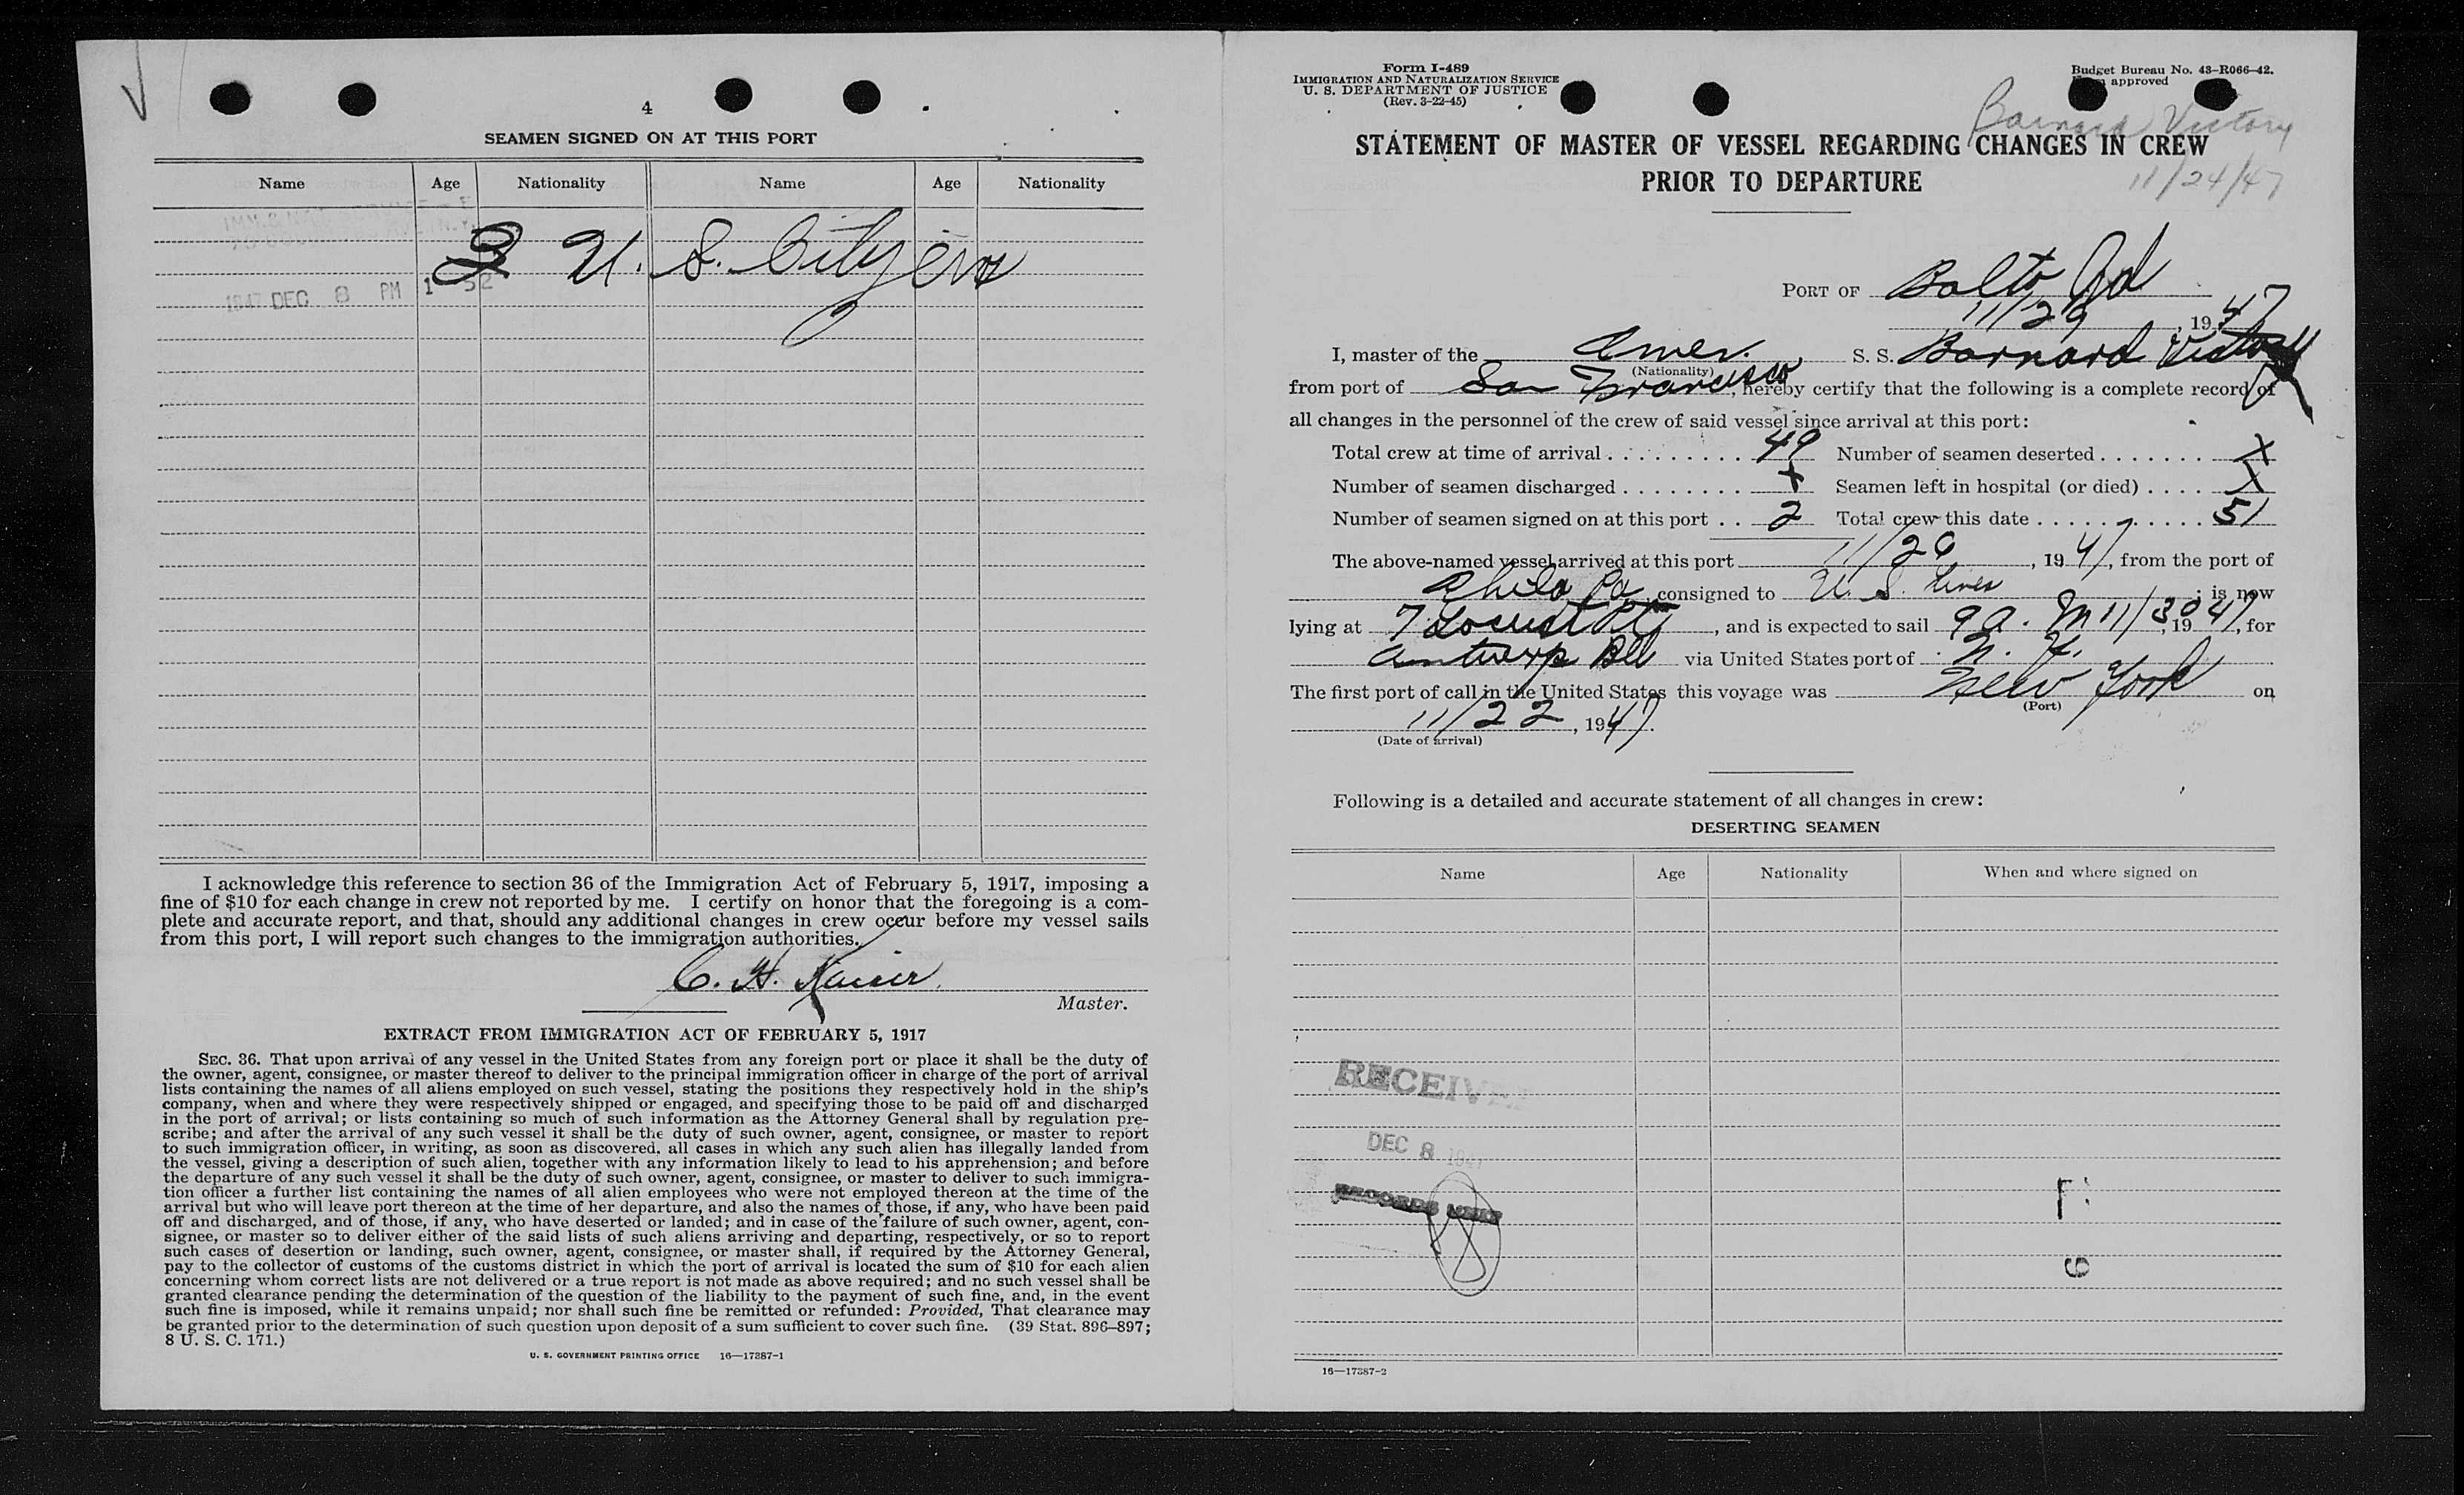 4
SEAMEN SIGNED ON AT THIS PORT
Name Age Nationality Name Age Nationality
2 U. S. Citizens
1947 DEC 8 PM 1 52
I acknowledge this reference to section 36 of the Immigration Act of February 5, 1917, imposing a
fine of $10 for each change in crew not reported by me. I certify on honor that the foregoing is a com-
plete and accurate report, and that, should any additional changes in crew occur before my vessel sails
from this port, I will report such changes to the immigration authorities.
C. H. Kaiser
Master.
EXTRACT FROM IMMIGRATION ACT OF FEBRUARY 5, 1917
SEC. 36. That upon arrival of any vessel in the United States from any foreign port or place it shall be the duty of
the owner, agent, consignee, or master thereof to deliver to the principal immigration officer in charge of the port of arrival
lists containing the names of all aliens employed on such vessel, stating the positions they respectively hold in the ship's
company, when and where they were respectively shipped or engaged, and specifying those to be paid off and discharged
in the port of arrival; or lists containing so much of such information as the Attorney General shall by regulation pre-
scribe; and after the arrival of any such vessel it shall be the duty of such owner, agent, consignee, or master to report
to such immigration officer, in writing, as soon as discovered, all cases in which any such alien has illegally landed from
the vessel, giving a description of such alien, together with any information likely to lead to his apprehension; and before
the departure of any such vessel it shall be the duty of such owner, agent, consignee, or master to deliver to such immigra-
tion officer a further list containing the names of all alien employees who were not employed thereon at the time of the
arrival but who will leave port thereon at the time of her departure, and also the names of those, if any, who have been paid
off and discharged, and of those, if any, who have deserted or landed; and in case of the failure of such owner, agent, con-
signee, or master so to deliver either of the said lists of such aliens arriving and departing, respectively, or so to report
such cases of desertion or landing, such owner, agent, consignee, or master shall, if required by the Attorney General,
pay to the collector of customs of the customs district in which the port of arrival is located the sum of $10 for each alien
concerning whom correct lists are not delivered or a true report is not made as above required; and no such vessel shall be
granted clearance pending the determination of the question of the liability to the payment of such fine, and, in the event
such fine is imposed, while it remains unpaid; nor shall such fine be remitted or refunded: Provided, That clearance may
be granted prior to the determination of such question upon deposit of a sum sufficient to cover such fine. (39 Stat. 896–897;
8 U. S. C. 171.)
U. S. GOVERNMENT PRINTING OFFICE 16—17387-1
Form I-489
IMMIGRATION AND NATURALIZATION SERVICE
U. S. DEPARTMENT OF JUSTICE
(Rev. 3-22-45)
Budget Bureau No. 43-R066-42.
approved
Barnard Victory
11/24/47
STATEMENT OF MASTER OF VESSEL REGARDING CHANGES IN CREW
PRIOR TO DEPARTURE
PORT OF Balto Md
11/29, 1947
I, master of the Amer. S. S. Barnard Victory
(Nationality)
from port of San Francisco, hereby certify that the following is a complete record of
all changes in the personnel of the crew of said vessel since arrival at this port:
Total crew at time of arrival 49 Number of seamen deserted X
Number of seamen discharged X Seamen left in hospital (or died) X
Number of seamen signed on at this port 2 Total crew this date 51
The above-named vessel arrived at this port 11/26, 1947, from the port of
Phila Pa, consigned to U. S. Lines; is now
lying at 7 Locust Pt, and is expected to sail 9 A. M 11/30, 1947, for
Antwerp Bel via United States port of N. Y.
The first port of call in the United States this voyage was New York on
(Port)
11/22, 1947.
(Date of arrival)
Following is a detailed and accurate statement of all changes in crew:
DESERTING SEAMEN
Name Age Nationality When and where signed on
RECEIVED
DEC 8 1947
RECORDS UNIT
16—17387-2